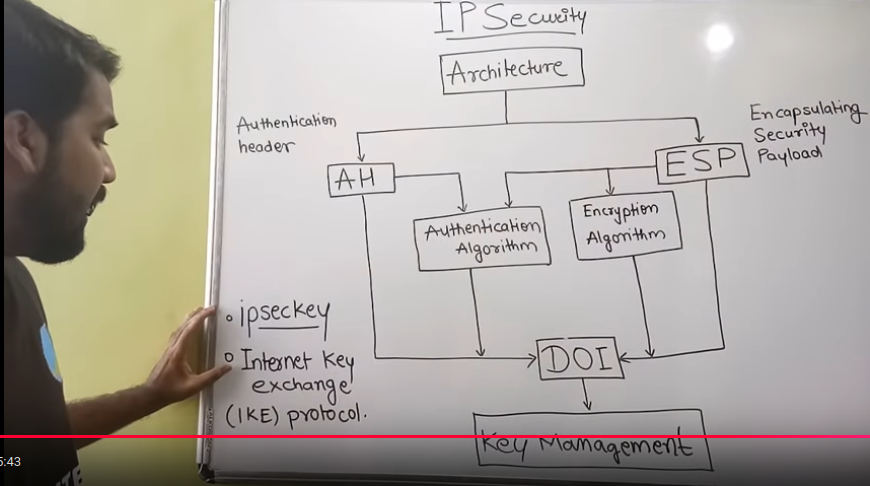 IP Security
Architecture
Authentication
header
Encapsulating
Security
Payload
AH
ESP
Authentication
Algorithm
Encryption
Algorithm
ipseckey
Internet Key
exchange
(IKE) protocol.
DOI
Key Management
5:43